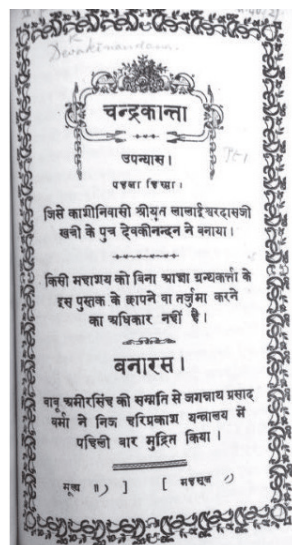 Devakinandana.
Pt. 1
चन्द्रकान्ता
उपन्यास।
पहला हिस्सा।
जिसे काशीनिवासी श्रीयुत लालाईश्वरदासजी
खत्री के पुत्र देवकीनन्दन ने बनाया।
किसी महाशय को बिना आज्ञा ग्रन्थकर्त्ता के
इस पुस्तक के छापने वा तर्जुमा करने
का अधिकार नहीं है।
बनारस।
बाबू अमीरसिंह की सम्मति से जगन्नाथ प्रसाद
वर्म्मा ने निज हरिप्रकाश यन्त्रालय में
पहिली बार मुद्रित किया।
मूल्य ॥) ] [ महसूल